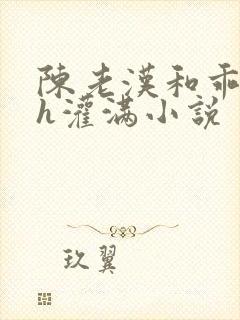 陳老漢和乖
h灌滿小說
玖翼